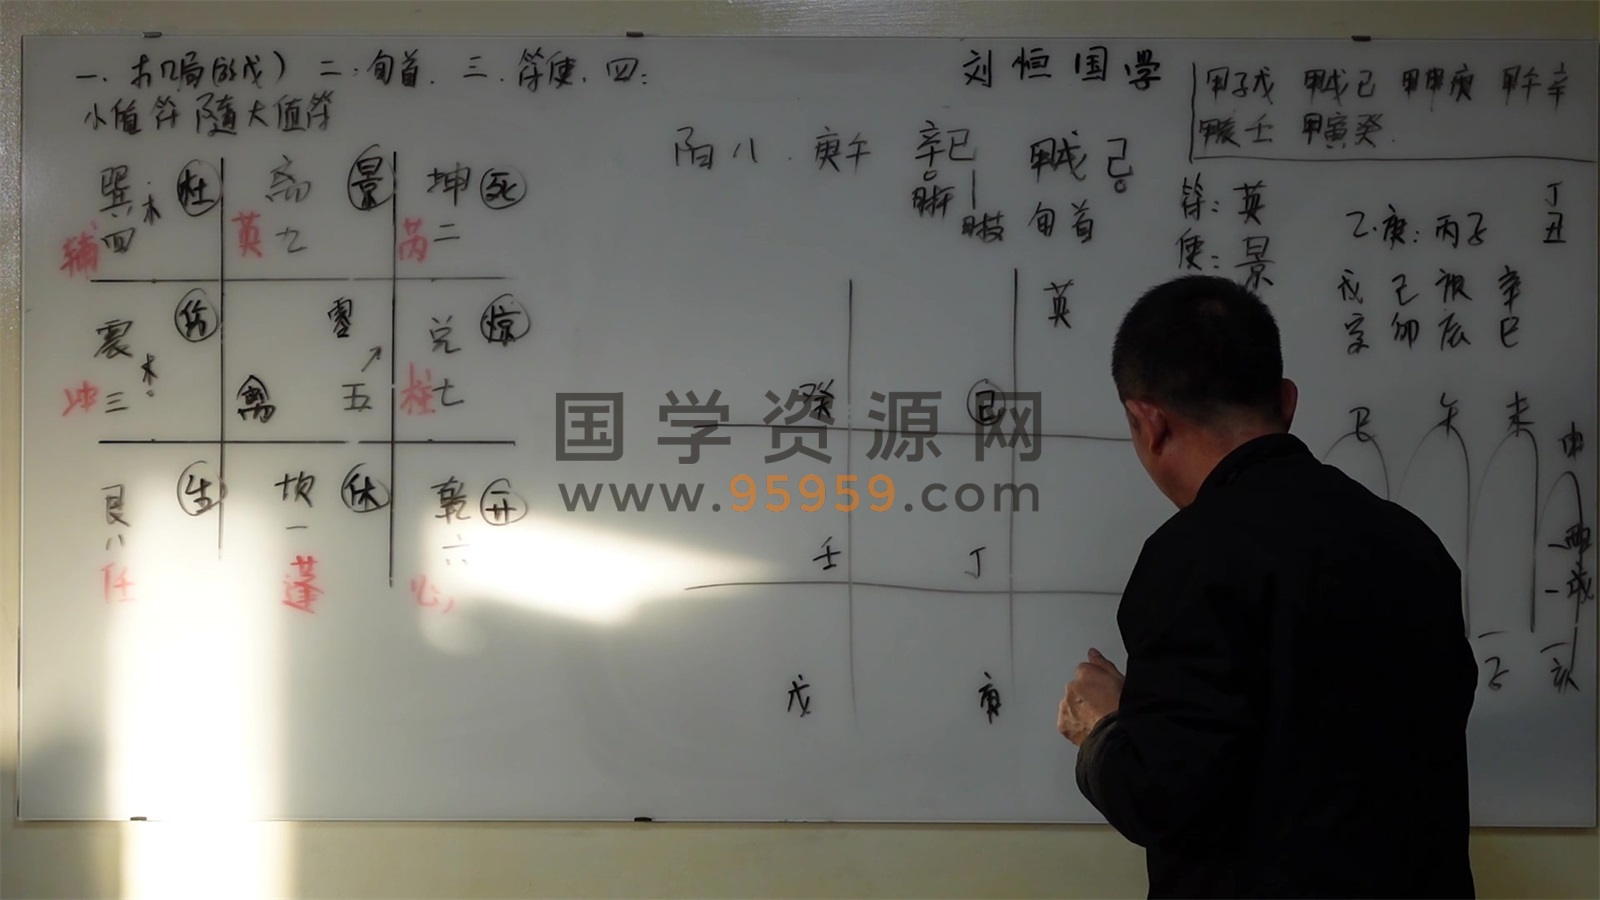 一、布几局(的戊) 二:旬首. 三.符使.四:
小值符随大值符
刘恒国学
甲子戊 甲戌己 甲申庚 甲午辛
甲辰壬 甲寅癸.
阳八.庚午 辛巳 甲戌己
旬首
符:英
使:景
乙.庚:丙子
丁
丑
戊 己 庚 辛
寅 卯 辰 巳
巳 午 未 申
酉
戌
子 亥
巽 木 杜
四 辅
离 景
英 九
坤 死
芮 二
震 木 伤
冲 三
寄
禽 五
兑 惊
柱 七
艮 生
八
任
坎 休
一
蓬
乾 开
六
心
英
癸 己
壬 丁
戊 庚
国学资源网
www.95959.com